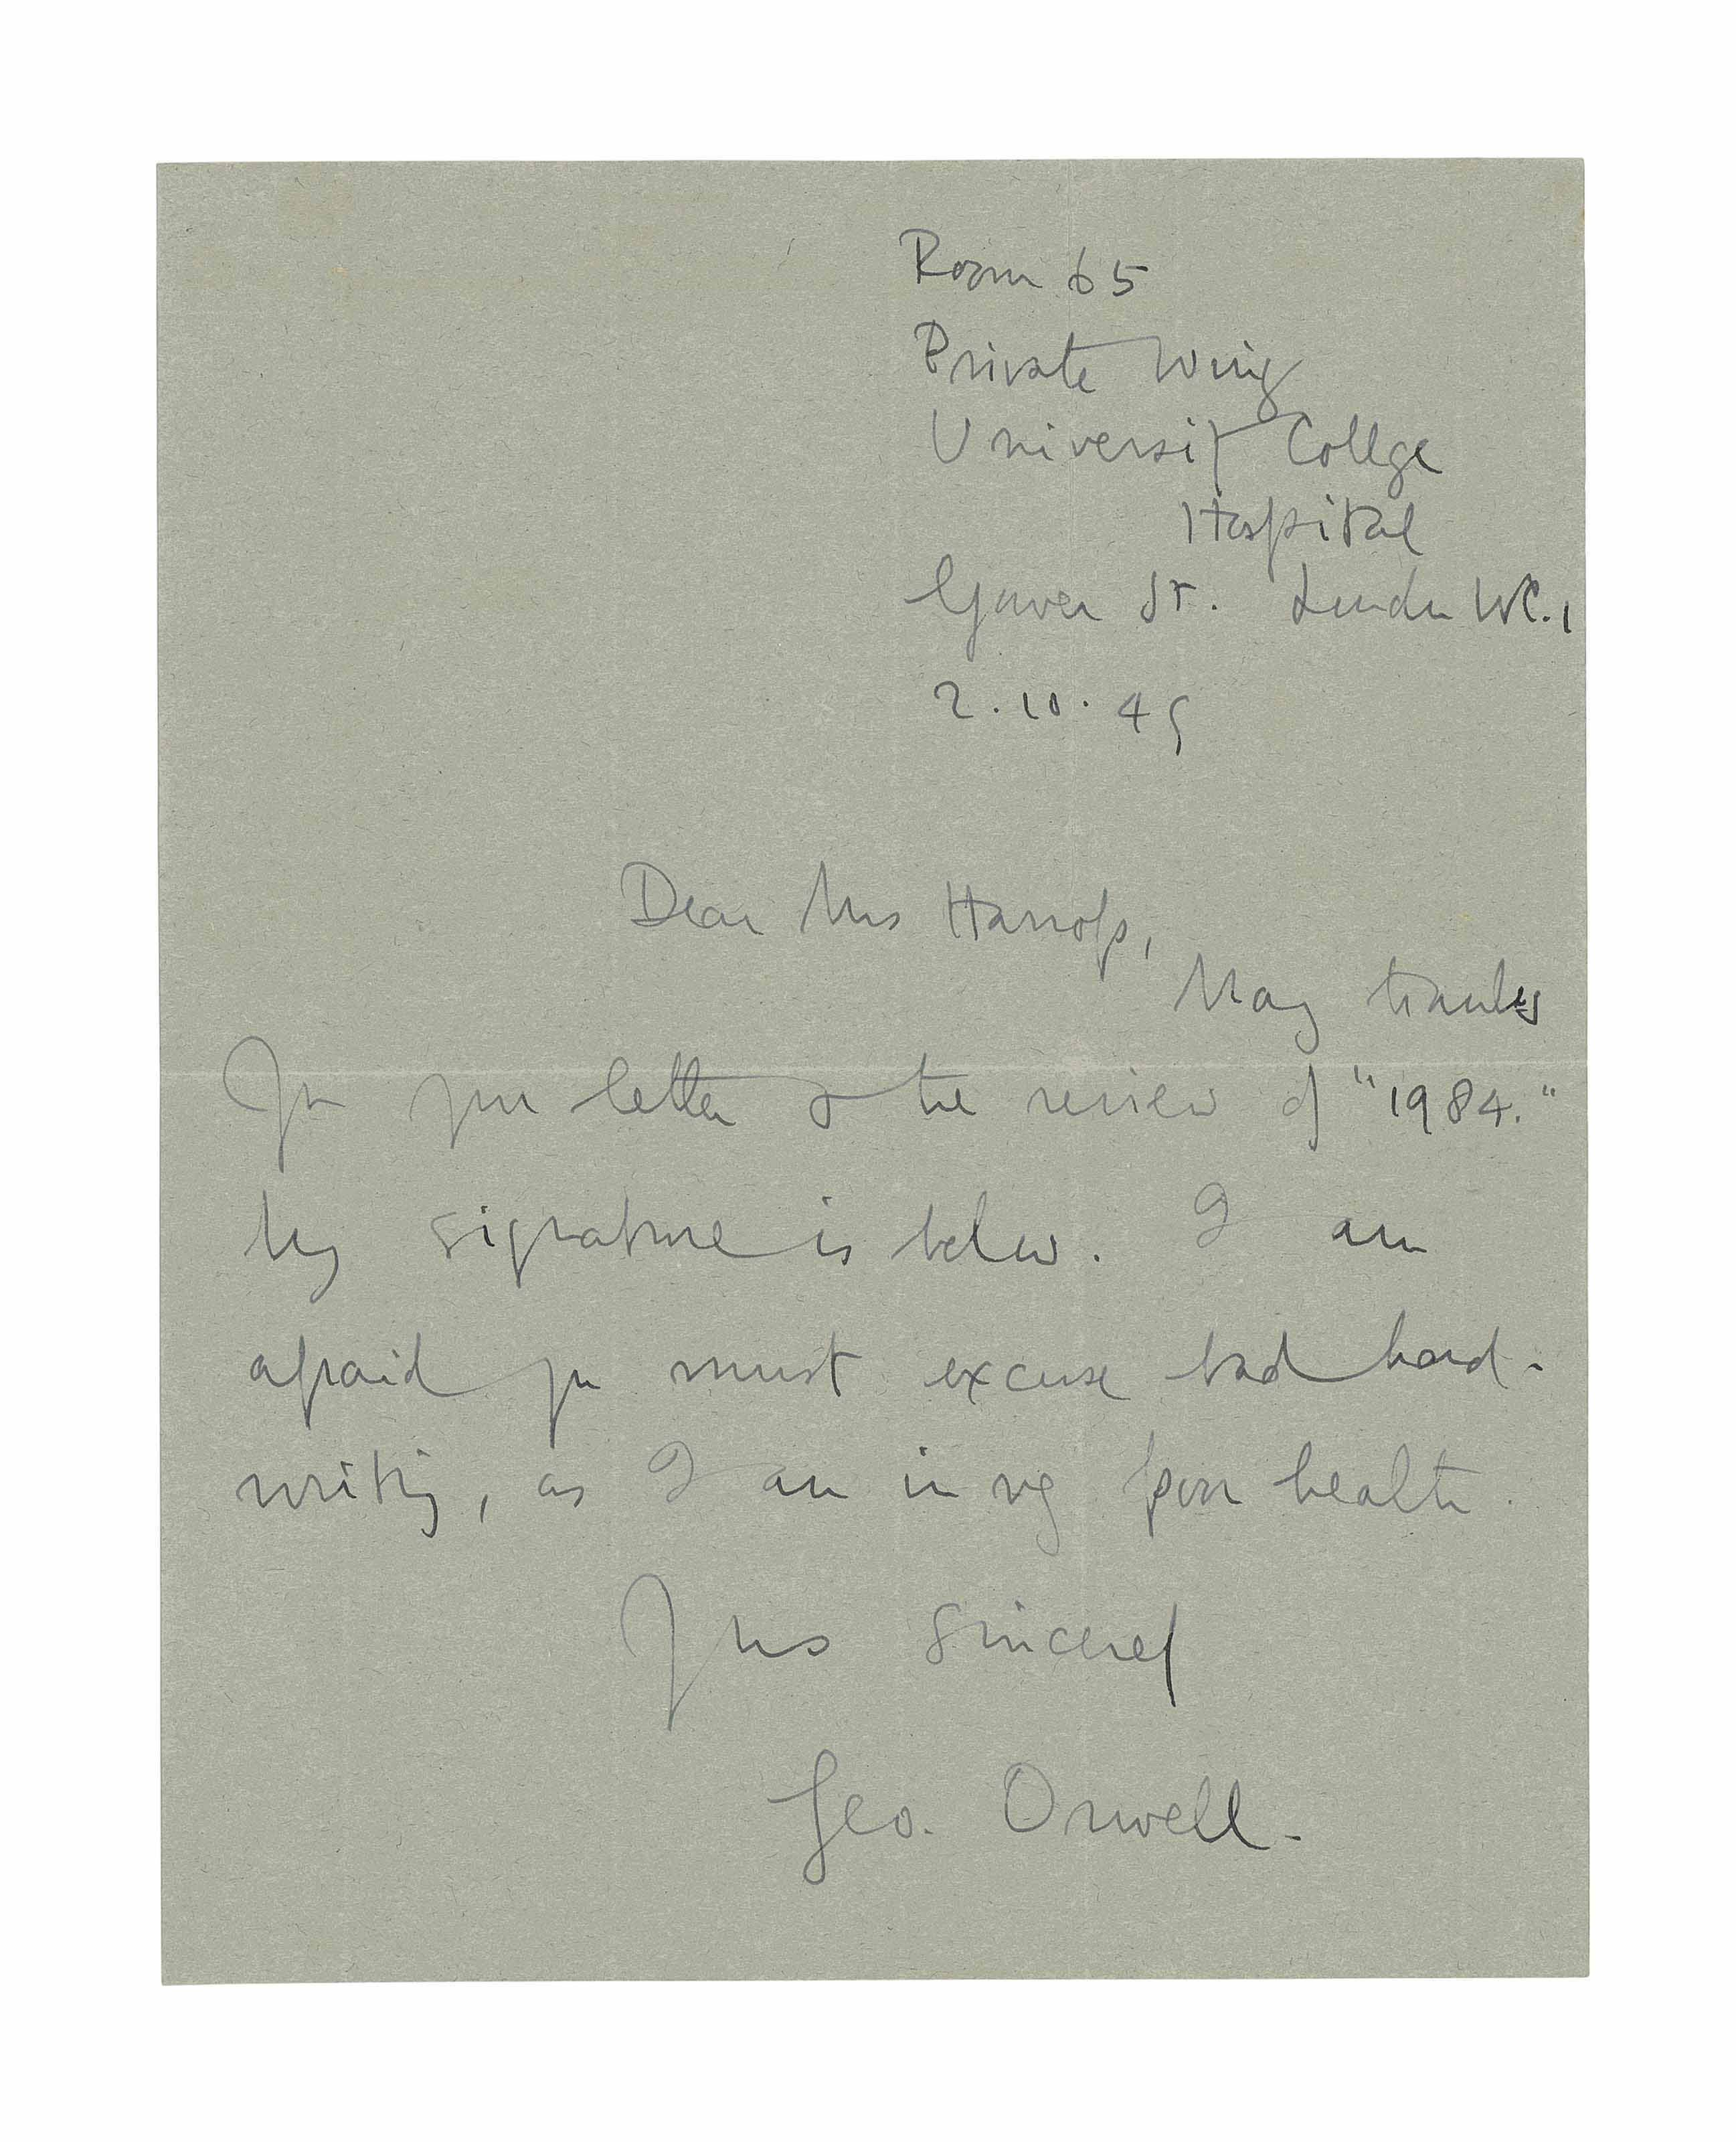 Room 65
Private Wing
University College
Hospital
Gower St. London WC.1
2.10.49
Dear Mrs Harrop,
Many thanks
for your letter & the review of "1984."
My signature is below. I am
afraid you must excuse bad hand-
writing, as I am in very poor health.
Yours sincerely
Geo. Orwell.